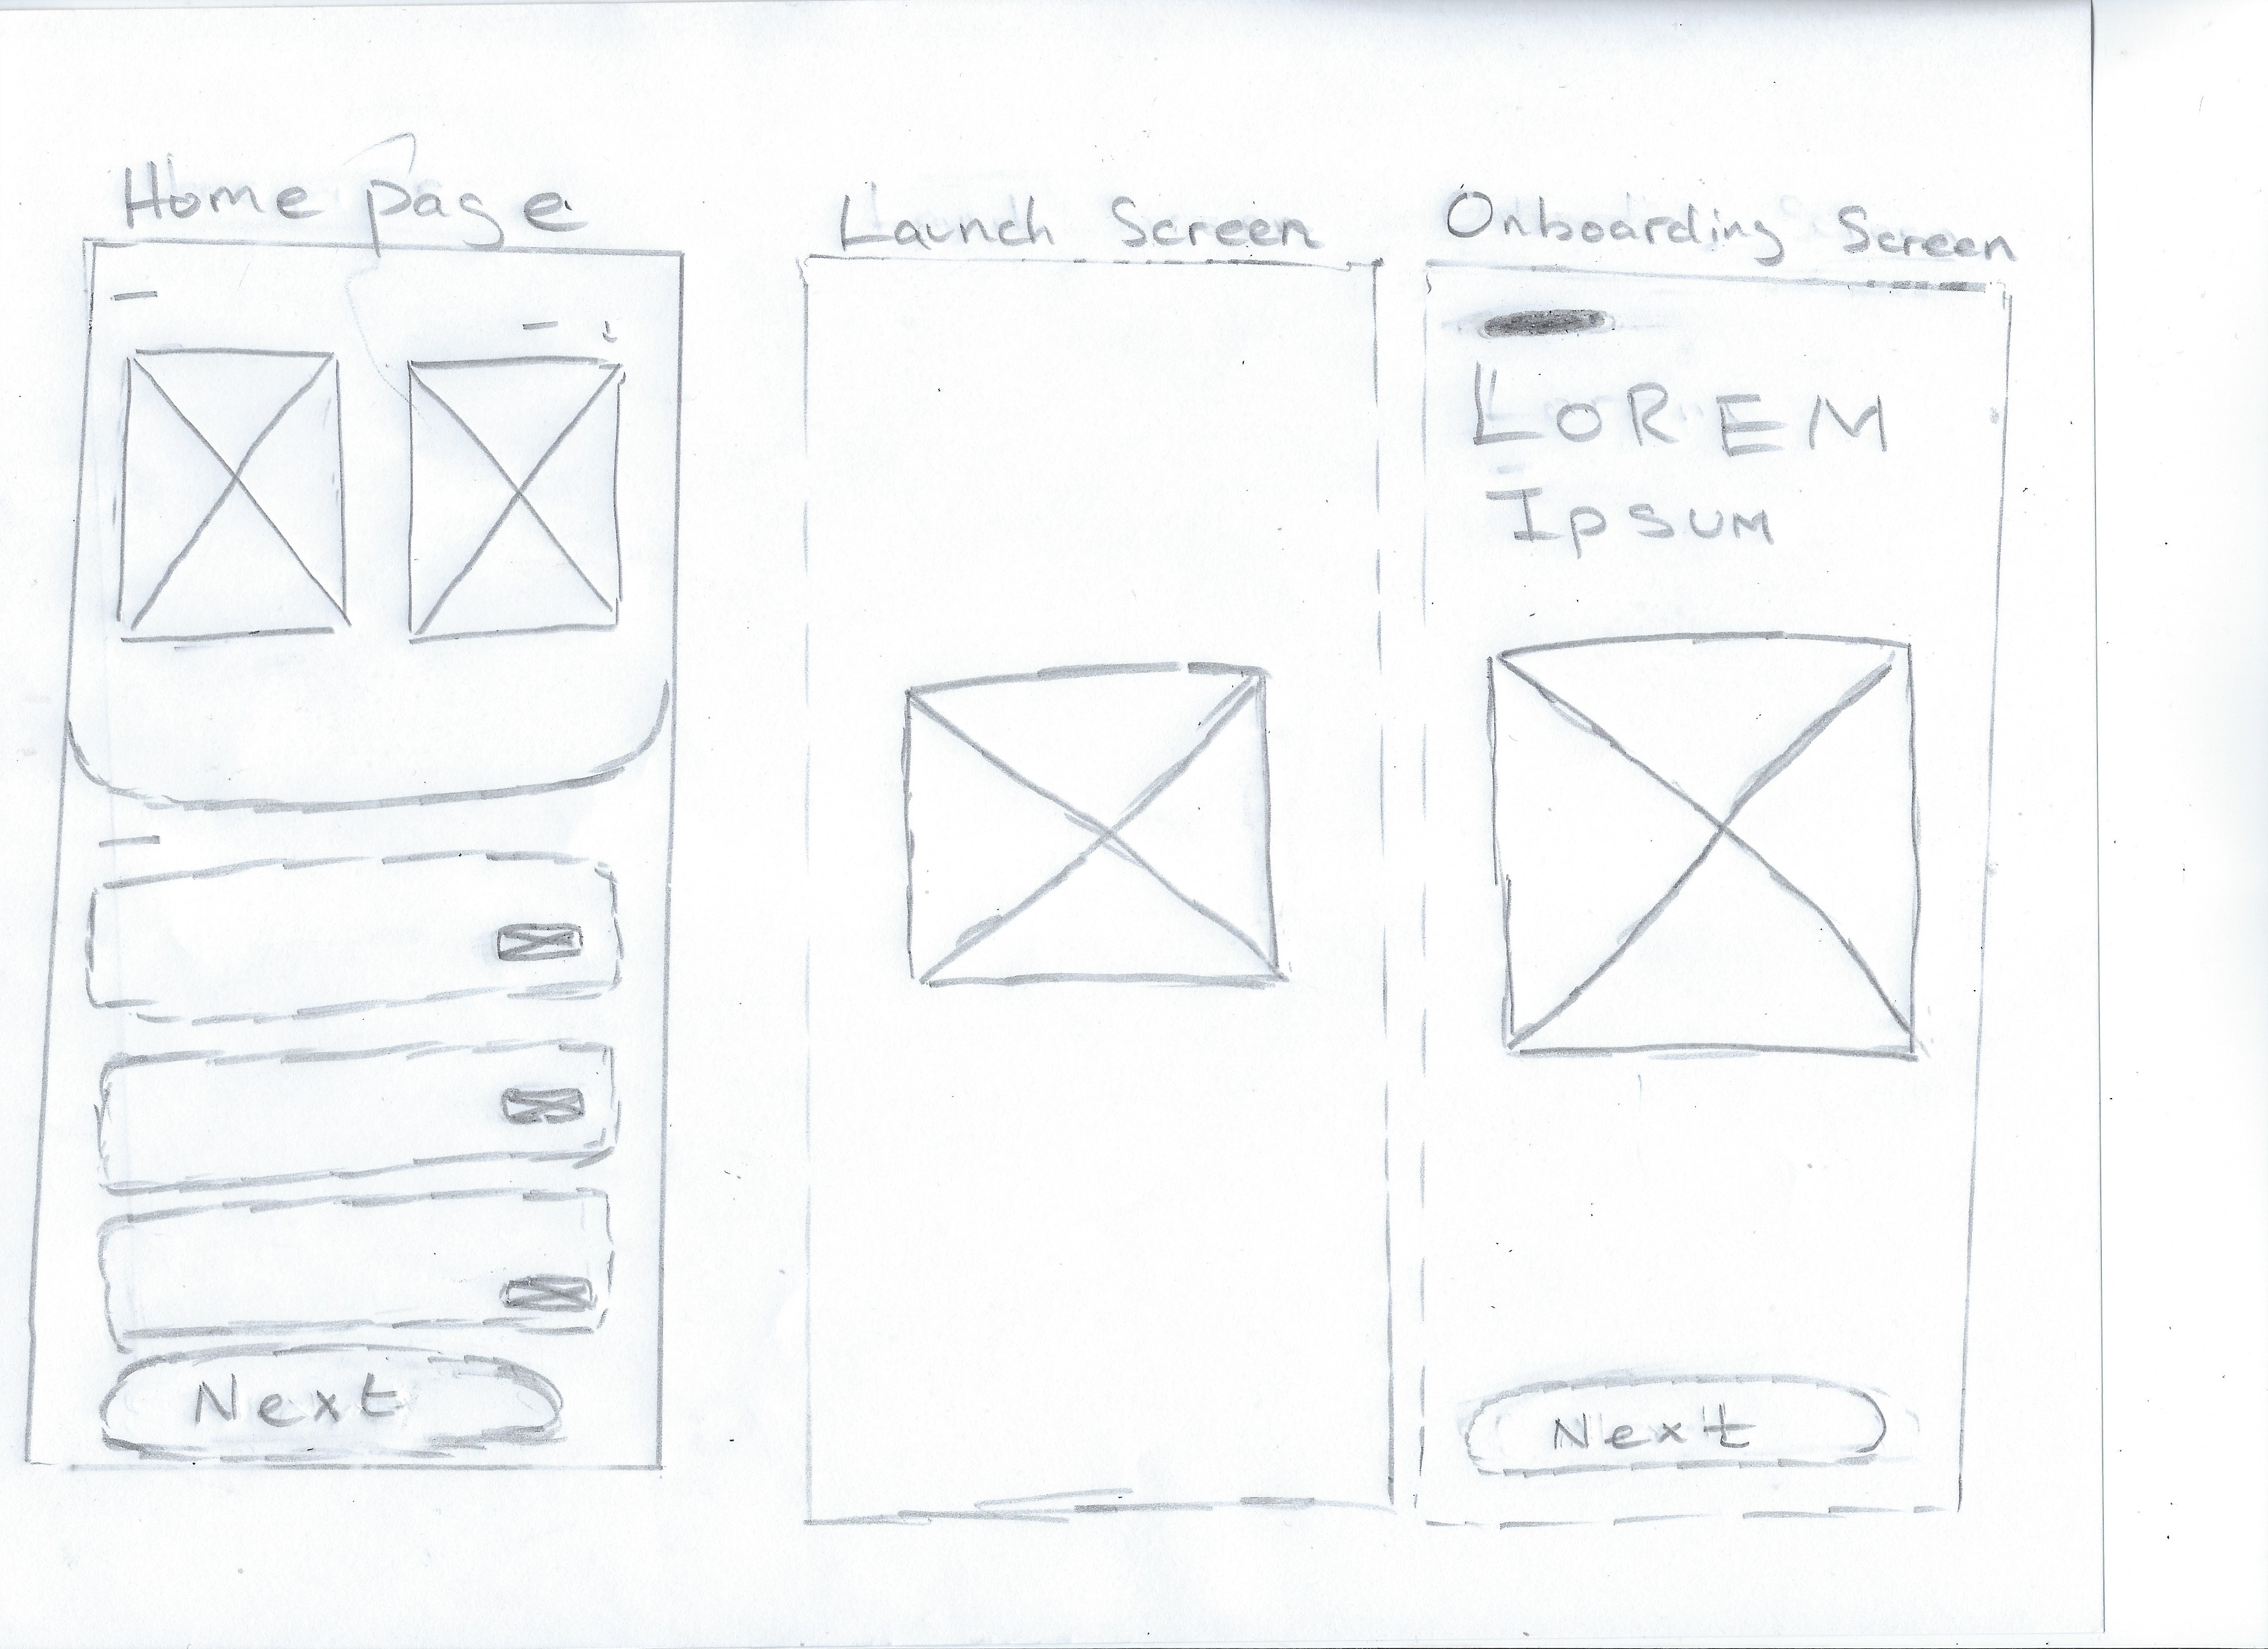 Home page
Launch Screen
Onboarding Screen
LOREM
IpSUM
Next
Next